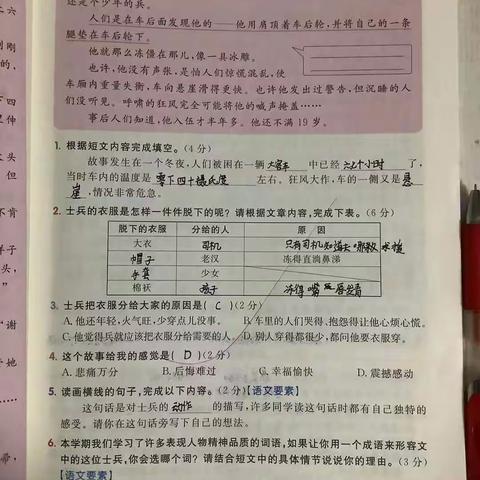 还是个少年的兵。
人们是在车后面发现他的——他用肩顶着车后轮,并将自己的一条
腿垫在车后轮下。
他就那么冻僵在那儿,像一具冰雕。
也许,他没有声张,是怕人们惊慌混乱,使
车厢内重量失衡,车向悬崖滑得更快。也许他发出过警告,但沉睡的人
们没听见。呼啸的狂风完全可能将他的喊声掩盖……
事后人们知道,他入伍才半年多。他还不满19岁。
1. 根据短文内容完成填空。(4分)
故事发生在一个冬夜,人们被困在一辆大客车中已经六七个小时了,
当时车内的温度是零下四十摄氏度左右。狂风大作,车的一侧又是悬
崖,情况非常危急。
2. 士兵的衣服是怎样一件件脱下的呢?请根据文章内容,完成下表。(6分)
脱下的衣服 分给的人 原因
大衣 司机 只有司机知道去哪救
帽子 老汉 冻得直淌鼻涕
手套 少女
棉袄 孩子 冻得嘴唇发青
3. 士兵把衣服分给大家的原因是( C )(2分)
A. 他还年轻,火气旺,少穿点儿没事。 B. 车里的人们哭得、抱怨得让他心烦心慌。
C. 他觉得兵就应该把衣服分给需要的人。 D. 别人穿得都很少,都问他要衣服穿。
4. 这个故事给我的感觉是( D )(2分)
A. 悲痛万分 B. 后悔难过 C. 幸福愉快 D. 震撼感动
5. 读画横线的句子,完成以下内容。(2分)【语文要素】
这句话是对士兵的动作的描写,许多同学读这句话时都有自己独特的
感受。请你在这句话旁写下自己的想法。
6. 本学期我们学习了许多表现人物精神品质的词语,如果让你用一个成语来形容文
中的这位士兵,你会选哪个词?请结合短文中的具体情节说说你的理由。(3分)
【语文要素】